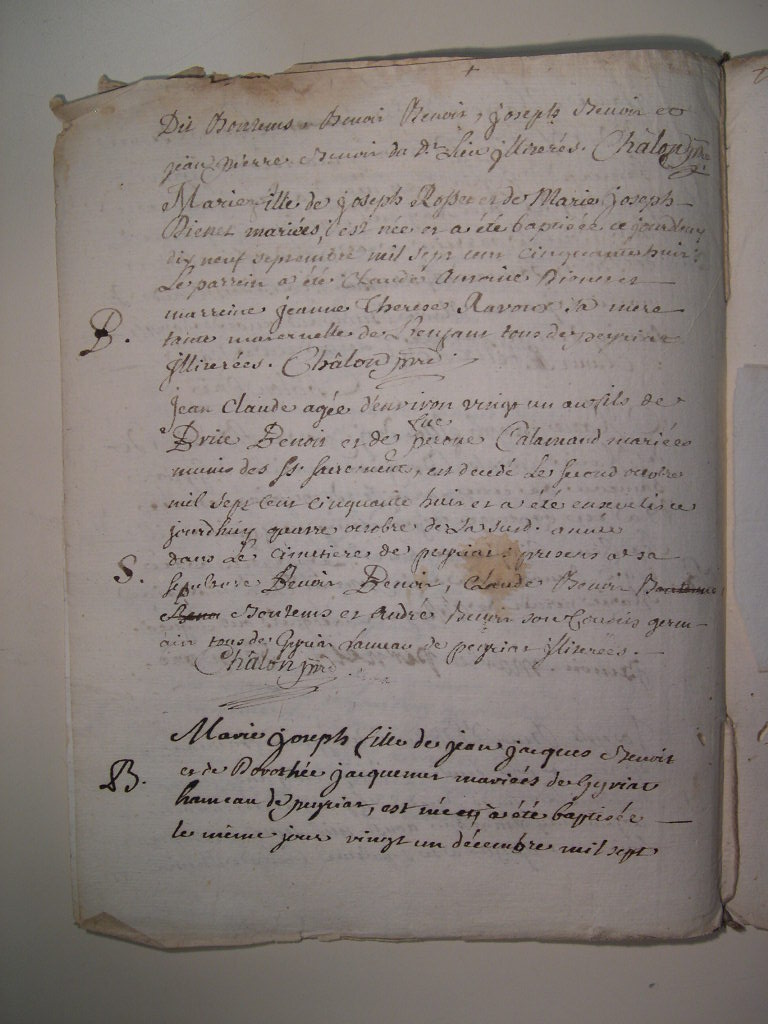 Dit Bontems, Benoir Benoir, joseph Benoir et
jean pierre Benoir du dt Lieu illiterés. Châlon
Marie ille de joseph Rosset et de Marie joseph
Bienet mariées, est née et a été baptisée ce jourdhuy
dix neuf septembre mil sept cent cinquante huit.
Le parrein a été Claude Antoine Bienet et
marreine jeanne Therese Ravoux sa mere
B. tante maternelle de L'enfant tous de peyriat
illiterées. Châlon
jean Claude agée d'environ vingt un ans fils de
Brice Benoir et de perone Calamand mariées
munis des Sts sacrements, est decedé Le second octobre
mil sept cent cinquante huit et a été enseveli ce
jourdhuy quatre octobre de La susd. année
dans Le cimetiere de peyriat: presens a sa
S. sepulture Benoir Benoir, Claude Benoir
Bontems et André Benoir son Cousin germ-
ain tous de Gyriat hameau de peyriat illiterées.
Châlon
Marie joseph fille de jean jacques Benoit
et de Dorothée jacquemet mariées de Gyriat
B. hameau de peyriat, est née et a été baptisée
le même jour vingt un décembre mil sept